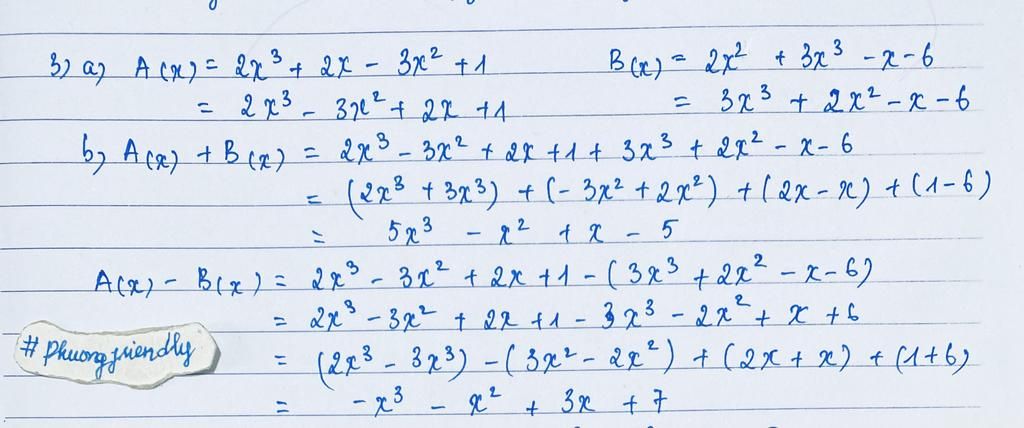 3) a) A(x) = 2x³ + 2x - 3x² + 1 B(x) = 2x² + 3x³ - x - 6
= 2x³ - 3x² + 2x + 1 = 3x³ + 2x² - x - 6
b) A(x) + B(x) = 2x³ - 3x² + 2x + 1 + 3x³ + 2x² - x - 6
= (2x³ + 3x³) + (- 3x² + 2x²) + (2x - x) + (1 - 6)
= 5x³ - x² + x - 5
A(x) - B(x) = 2x³ - 3x² + 2x + 1 - (3x³ + 2x² - x - 6)
= 2x³ - 3x² + 2x + 1 - 3x³ - 2x² + x + 6
= (2x³ - 3x³) - (3x² - 2x²) + (2x + x) + (1 + 6)
= -x³ - x² + 3x + 7
#Phuongfriendly